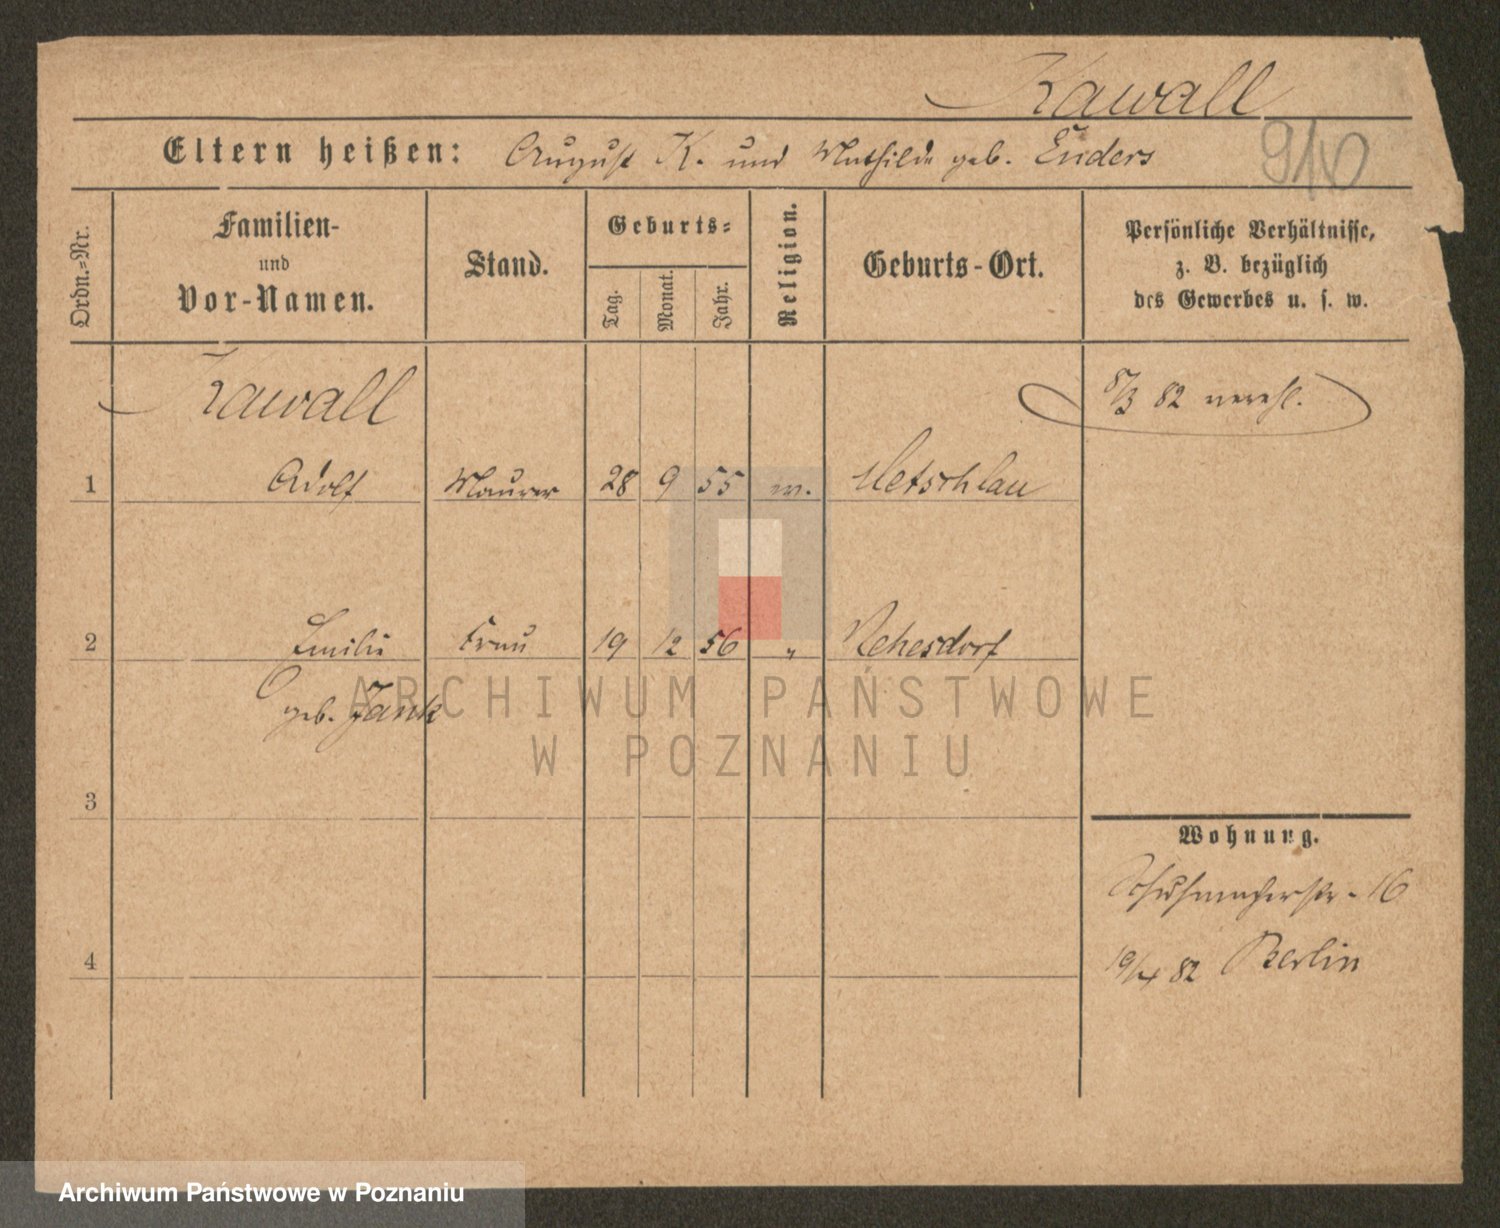 Kawall
Eltern heißen: August K. und Mathilde geb. Enders
910
Ordn.=Nr.
Familien-
und
Vor-Namen.
Stand.
Geburts=
Tag.
Monat.
Jahr.
Religion.
Geburts-Ort.
Persönliche Verhältnisse,
z. B. bezüglich
des Gewerbes u. s. w.
Kawall
8/3 82 verehl.
1 Adolf Maurer 28 9 55 Metschlau
2 Emilie Frau 19 12 56 " Rehesdorf
geb. Jank
ARCHIWUM PAŃSTWOWE
W POZNANIU
3
Wohnung.
Schuhmacherstr. 16
4
19/4 82 Berlin
Archiwum Państwowe w Poznaniu